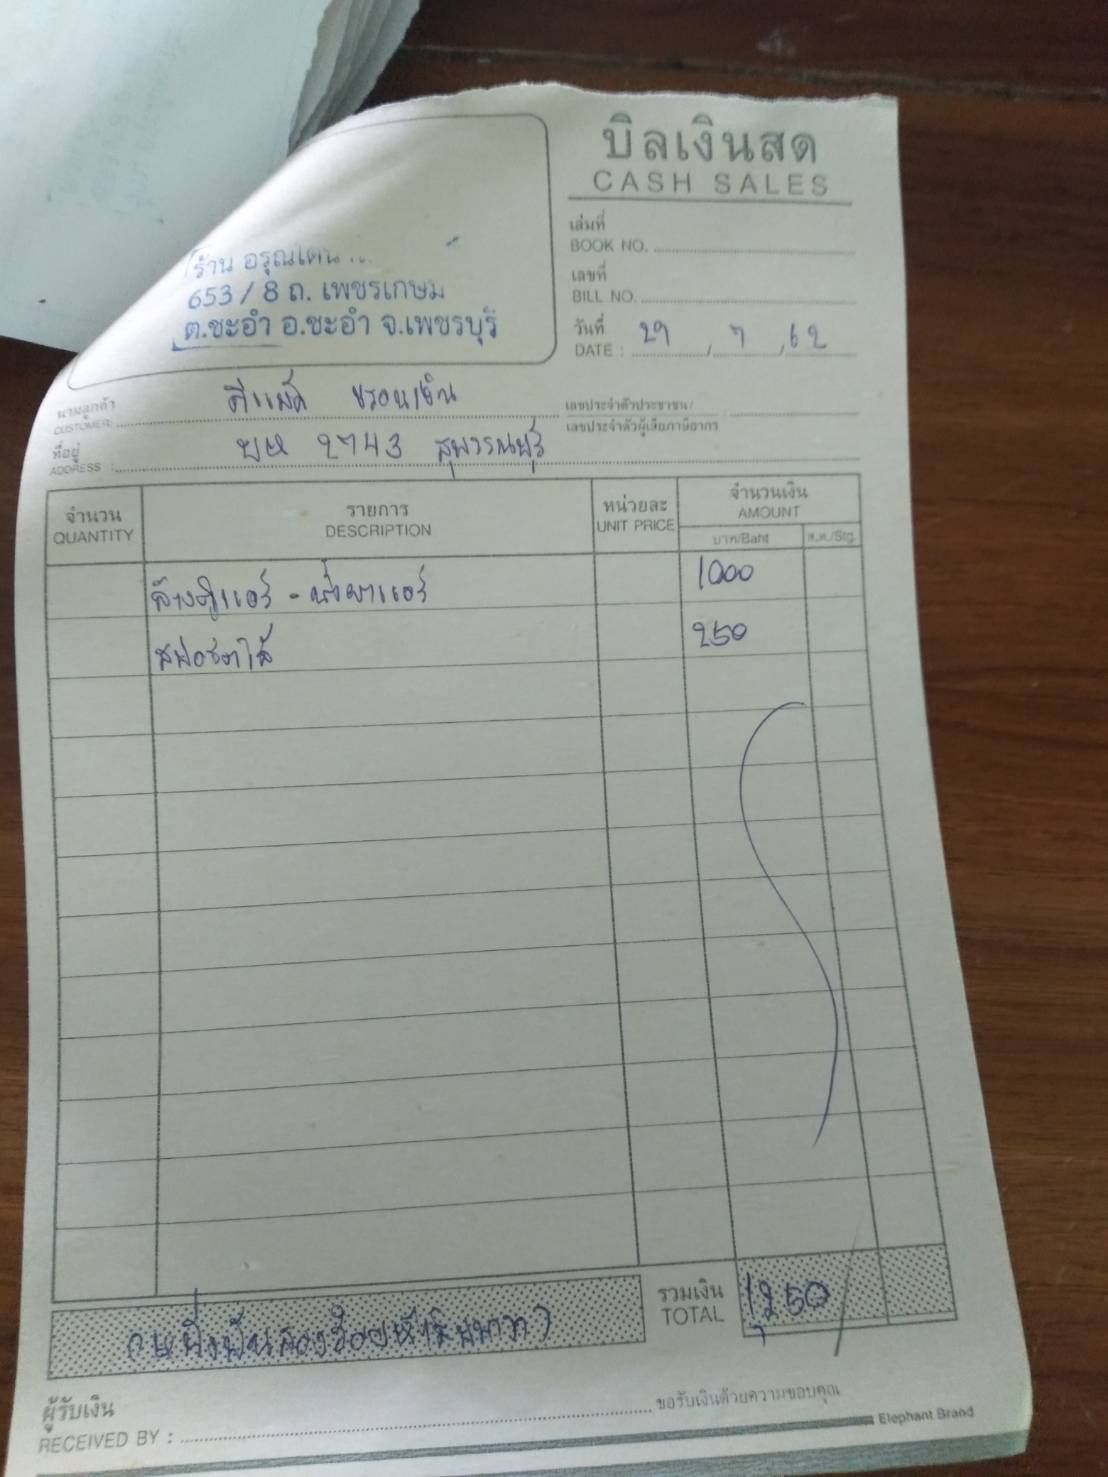 บิลเงินสด
CASH SALES
ร้าน อรุณ
653/8 ถ. เพชรเกษม
ต.ชะอำ อ.ชะอำ จ.เพชรบุรี
เล่มที่
BOOK NO.
เลขที่
BILL NO.
วันที่
DATE : 29 / 7 / 62
นามลูกค้า
CUSTOMER:
เลขประจำตัวประชาชน/
เลขประจำตัวผู้เสียภาษีอากร
ที่อยู่
ADDRESS : 2743 สุพรรณบุรี
จำนวน QUANTITY
รายการ DESCRIPTION
หน่วยละ UNIT PRICE
จำนวนเงิน AMOUNT
บาท/Baht ส.ต./Stg.
ล้างตู้แอร์ - น้ำยาแอร์ 1000
250
รวมเงิน
TOTAL 1,250
(หนึ่งพันสองร้อยห้าสิบบาท)
ผู้รับเงิน
RECEIVED BY : ขอรับเงินด้วยความขอบคุณ
Elephant Brand